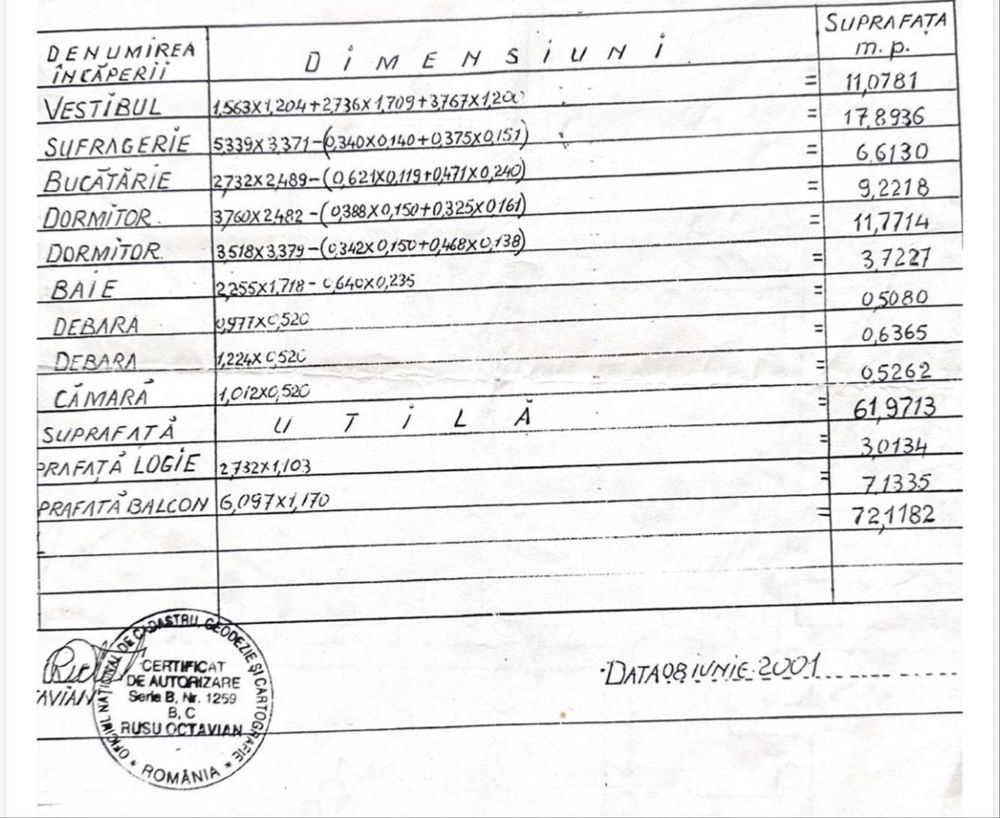 DENUMIREA ÎNCĂPERII DIMENSIUNI SUPRAFAȚA m.p.
VESTIBUL 1,563x1,204+2,736x1,709+3,767x1,200 = 11,0781
SUFRAGERIE 5,339x3,371-(0,340x0,140+0,375x0,151) = 17,8936
BUCĂTĂRIE 2,732x2,489-(0,621x0,119+0,471x0,240) = 6,6130
DORMITOR 3,760x2,482-(0,388x0,150+0,325x0,161) = 9,2218
DORMITOR 3,518x3,379-(0,342x0,150+0,468x0,138) = 11,7714
BAIE 2,255x1,718-0,640x0,235 = 3,7227
DEBARA 0,977x0,520 = 0,5080
DEBARA 1,224x0,520 = 0,6365
CĂMARĂ 1,012x0,520 = 0,5262
SUPRAFAȚĂ UTILĂ = 61,9713
PRAFAȚĂ LOGIE 2,732x1,103 = 3,0134
PRAFAȚĂ BALCON 6,097x1,170 = 7,1335
= 72,1182
TAVIAN
OFICIUL NAȚIONAL DE CADASTRU GEODEZIE ȘI CARTOGRAFIE
CERTIFICAT
DE AUTORIZARE
Seria B, Nr. 1259
B, C
RUSU OCTAVIAN
* ROMÂNIA *
DATA 08 IUNIE 2001